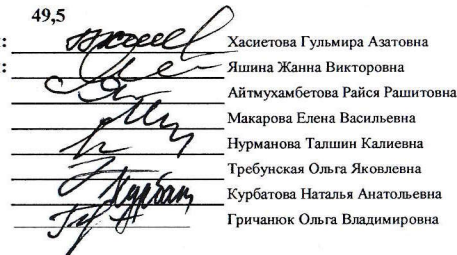 49,5
: Хасиетова Гульмира Азатовна
: Яшина Жанна Викторовна
Айтмухамбетова Райся Рашитовна
Макарова Елена Васильевна
Нурманова Талшин Калиевна
Требунская Ольга Яковлевна
Курбатова Наталья Анатольевна
Гричанюк Ольга Владимировна